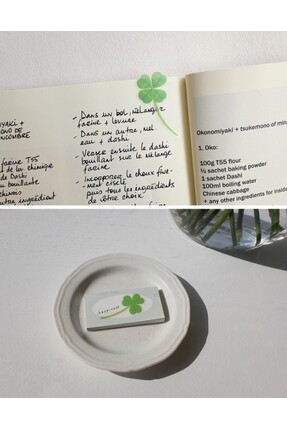 IYAKI +
ONO DE
ONCOMBRE
farine T55
de Dashi
bouillante
chinois
ingrédient
- Dans un bol, mélanger
farine + levure
- Dans un autre, mél.
eau + dashi
- Verser ensuite le dashi
bouillant sur le mélange
farine
- Incorporer le choux fine-
ment ciselé
puis tous les ingrédients
de votre choix
Okonomiyaki + tsukemono of min
1. Oko:
100g T55 flour
½ sachet baking powder
1 sachet Dashi
100ml boiling water
Chinese cabbage
+ any other ingredients for insid